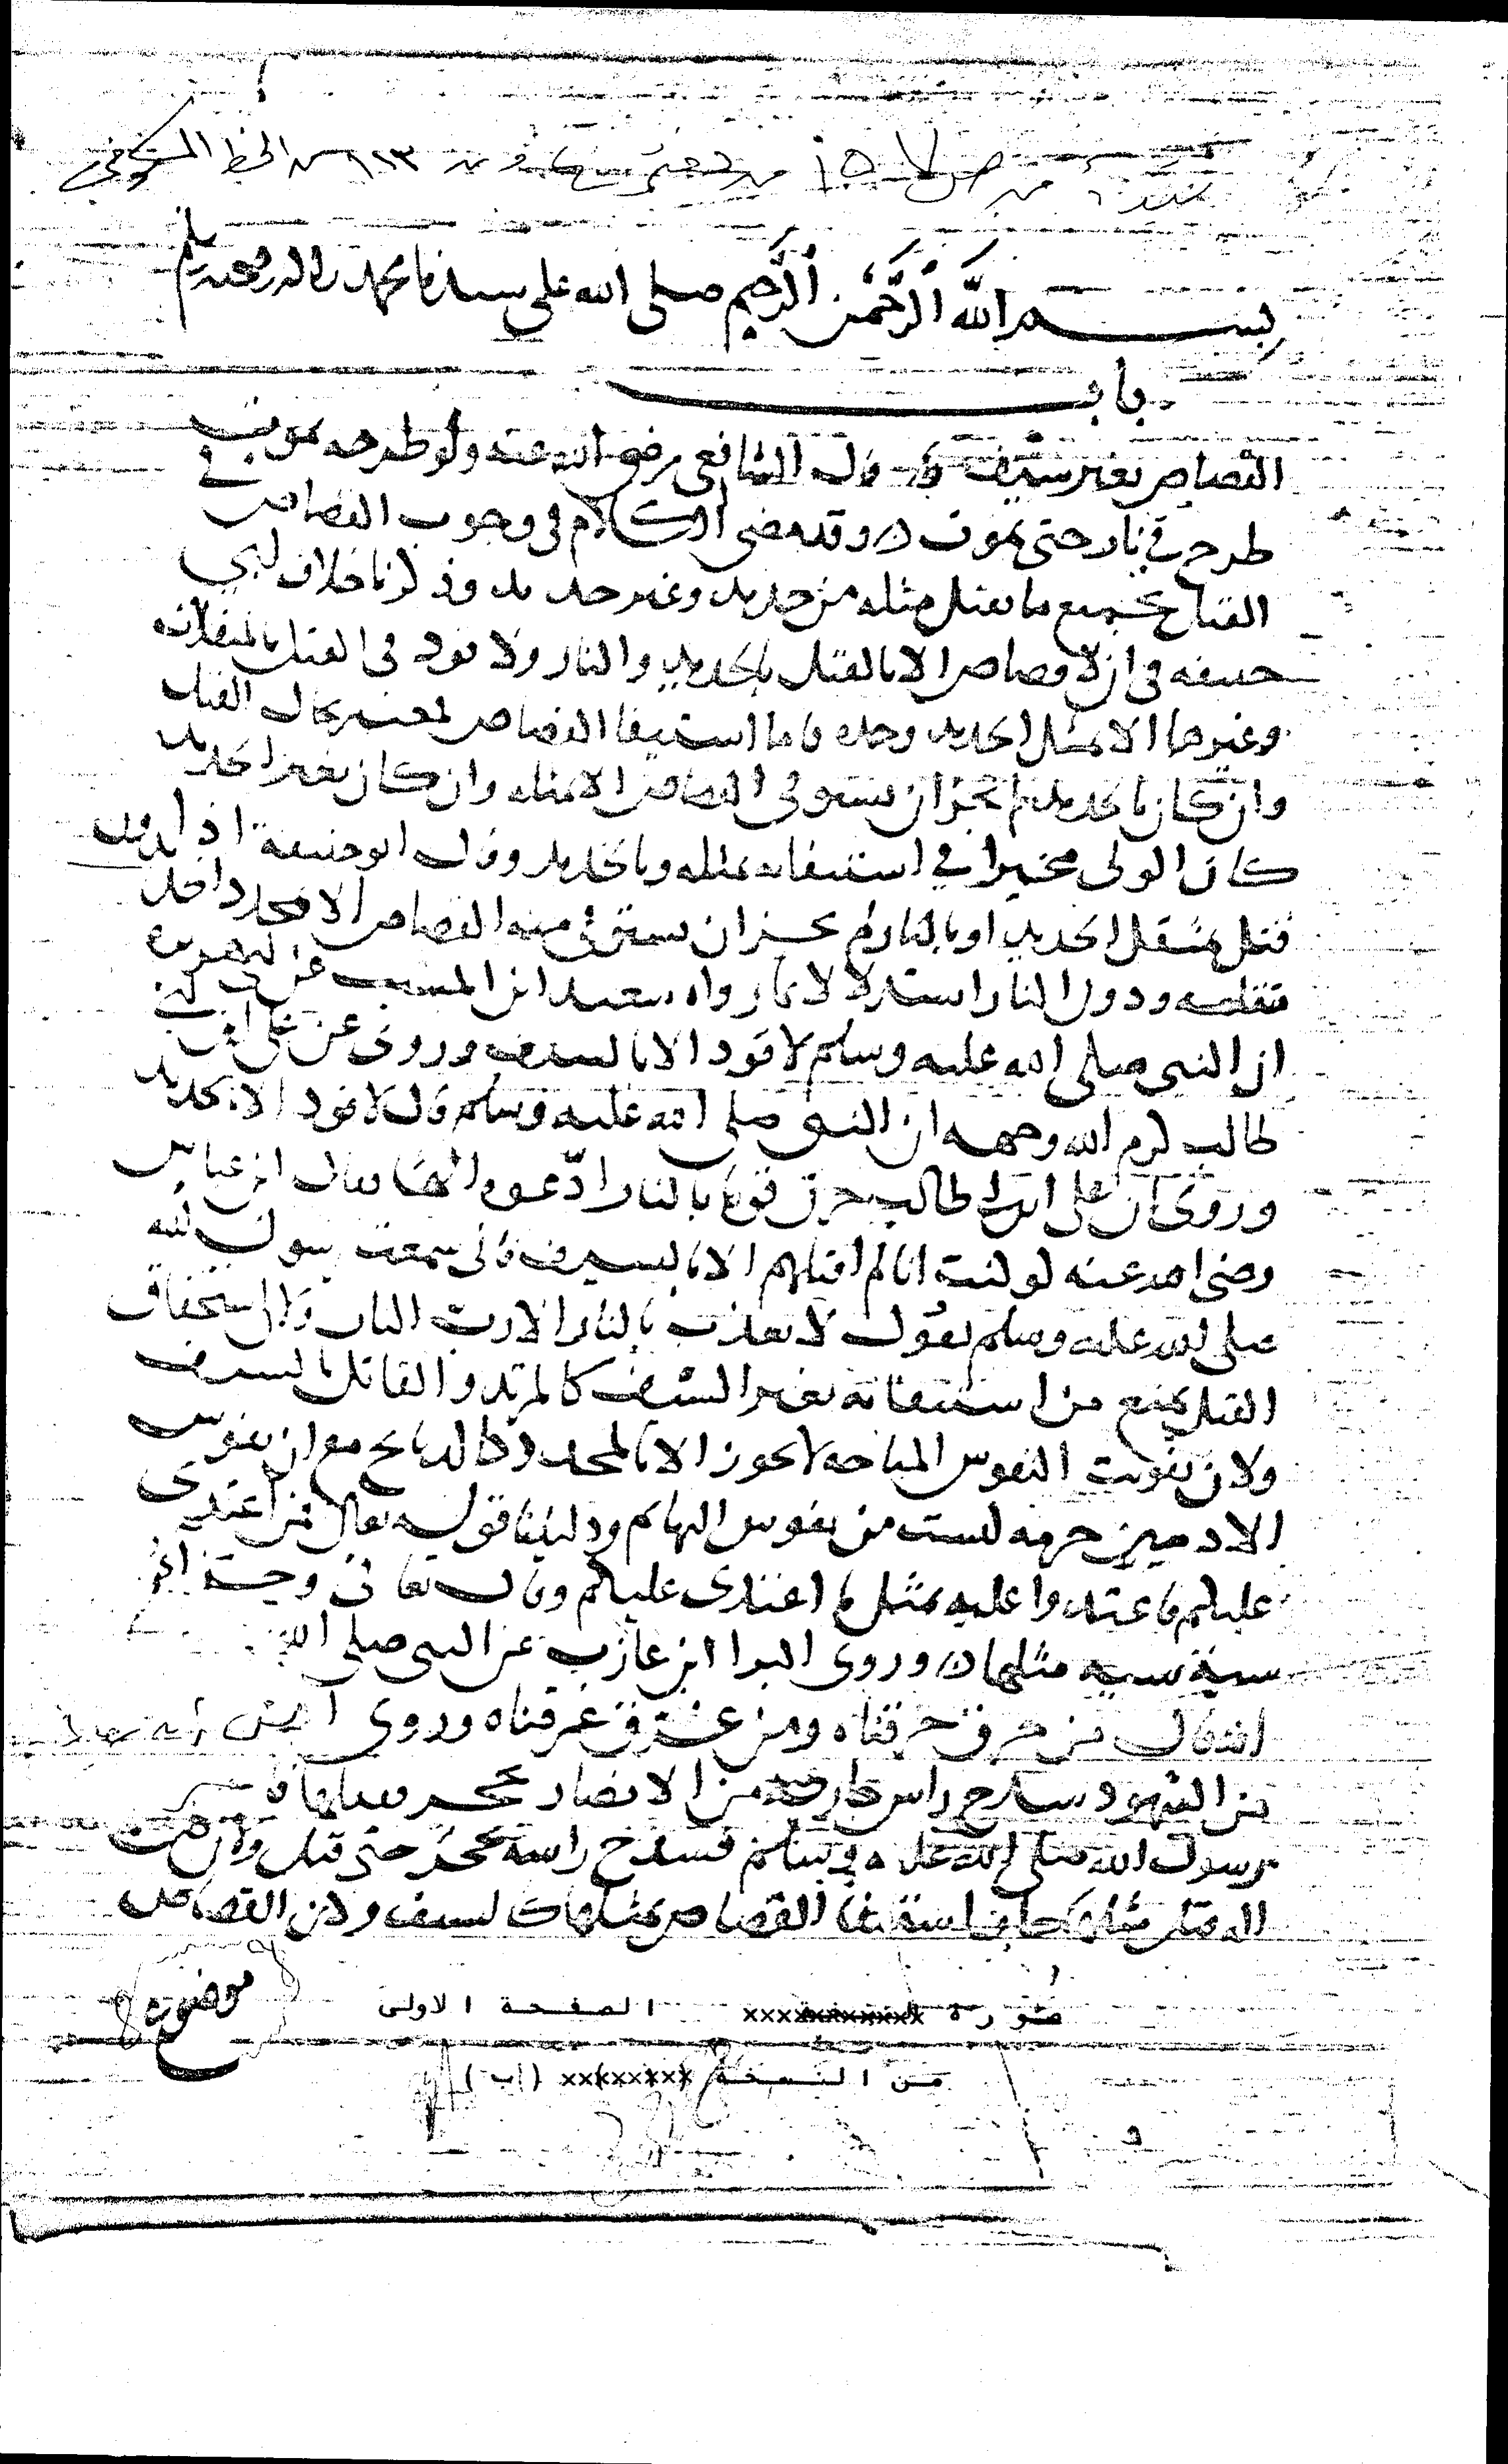 بسم الله الرحمن الرحيم صلى الله على سيدنا محمد واله وصحبه وسلم
باب
القصاص بغير سيف قال الشافعي رضي الله عنه ولو طرحه
طرح في نار حتى يموت وقد مضى الكلام في وجوب القصاص في
القتل بجميع ما يقتل مثله من حديد وغير حديد وذكرنا خلاف ابي
حنيفه في ان لا قصاص الا بالقتل بالحديد والنار ولا قود في القتل بالمثقلات
وغيرها الا بمثقل الحديد وحده فاما استيفا القصاص فمعتبر بحال القتل
وان كان بالحديد لم يجز ان يستوفى القصاص الا بمثله وان كان بغير الحديد
كان الولي مخيرا في استيفائه بمثله وبالحديد وقال ابو حنيفة اذا
قتل بمثقل الحديد او بالنار لم يجز ان يستوفى منه القصاص الا بمحدد الحديد
مثقله ودون النار استدلالا بما رواه سعيد ابن المسيب عن ابي هريرة
ان النبي صلى الله عليه وسلم لا قود الا بالسيف وروي عن علي ابن ابي
طالب كرم الله وجهه ان النبي صلى الله عليه وسلم قال لا قود الا بحديد
وروي ان علي ابن ابي طالب حرق قوما بالنار ادعوه الها فقال ابن عباس
رضي الله عنه لو كنت انا لم اقتلهم الا بالسيف فاني سمعت رسول الله
صلى الله عليه وسلم يقول لا يعذب بالنار الا رب النار ولان استحقاق
القتل يمنع من استيفائه بغير السيف كالمرتد والقاتل بالسيف
ولان تفويت النفوس المباحه لا يجوز الا بالمحدد كالذبائح مع ان نفوس
الادميين حرمه ليست من نفوس البهائم ودليلنا قوله تعالى فمن اعتدى
عليكم فاعتدوا عليه بمثل ما اعتدى عليكم وقال تعالى وجزاء
سيئة سيئة مثلها وروى البرا ابن عازب عن النبي صلى الله
انه قال من حرق حرقناه ومن غرق غرقناه وروى
من اليهود شدخ راس جارية من الانصار بحجر فقتلها
رسول الله صلى الله عليه وسلم فشدخ راسه بحجر حتى قتل ولان كل
القصاص بمثلها كالسيف ولان القصاص
موضوع
صورة xxxxxxxxxxxx الصفحة الاولى
من النسخة xxxxxxxx (ب)